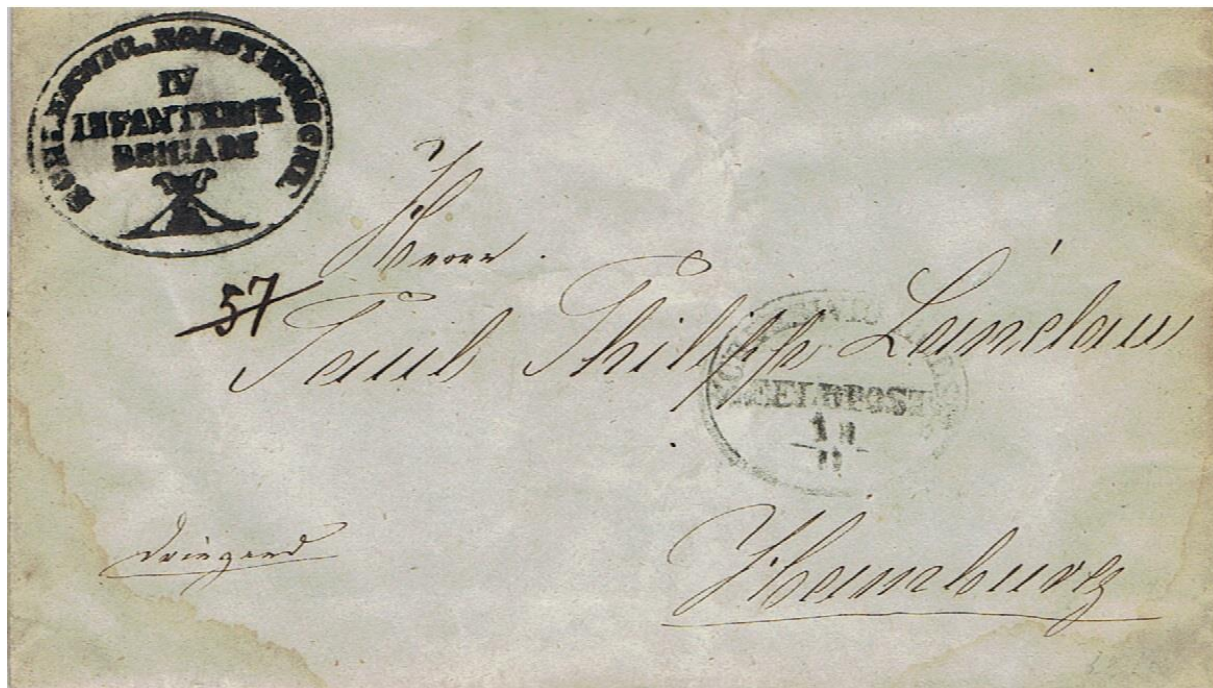 SCHLESWIG-HOLSTEINISCHE
IV
INFANTERIE
BRIGADE
Herrn
57
Paul Philipp Landau
FELDPOST
dringend
Hamburg